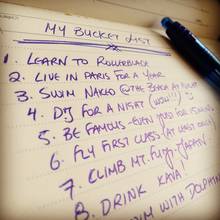 MY BUCKET LIST
1. LEARN TO ROLLERBLADE
2. LIVE IN PARIS FOR A YEAR
3. SWIM NAKED @ THE BEACH AT NIGHT
4. DJ FOR A NIGHT (WOW!!!)
5. BE FAMOUS - EVEN JUST FOR
6. FLY FIRST CLASS (AT LEAST ONCE)
7. CLIMB MT. FUJI, JAPAN
8. DRINK KAVA!
SWIM WITH DOLPHIN